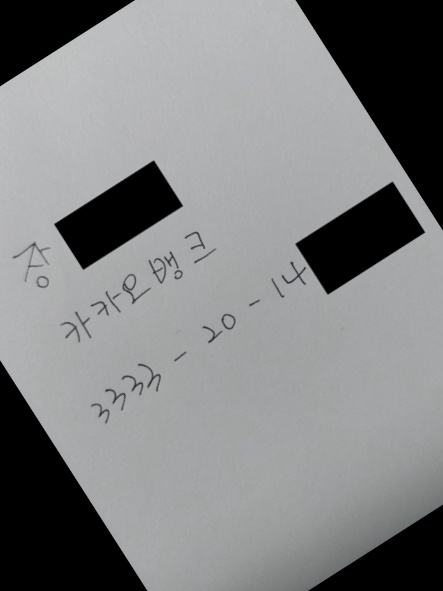 카카오뱅크
3333 - 20 - 14